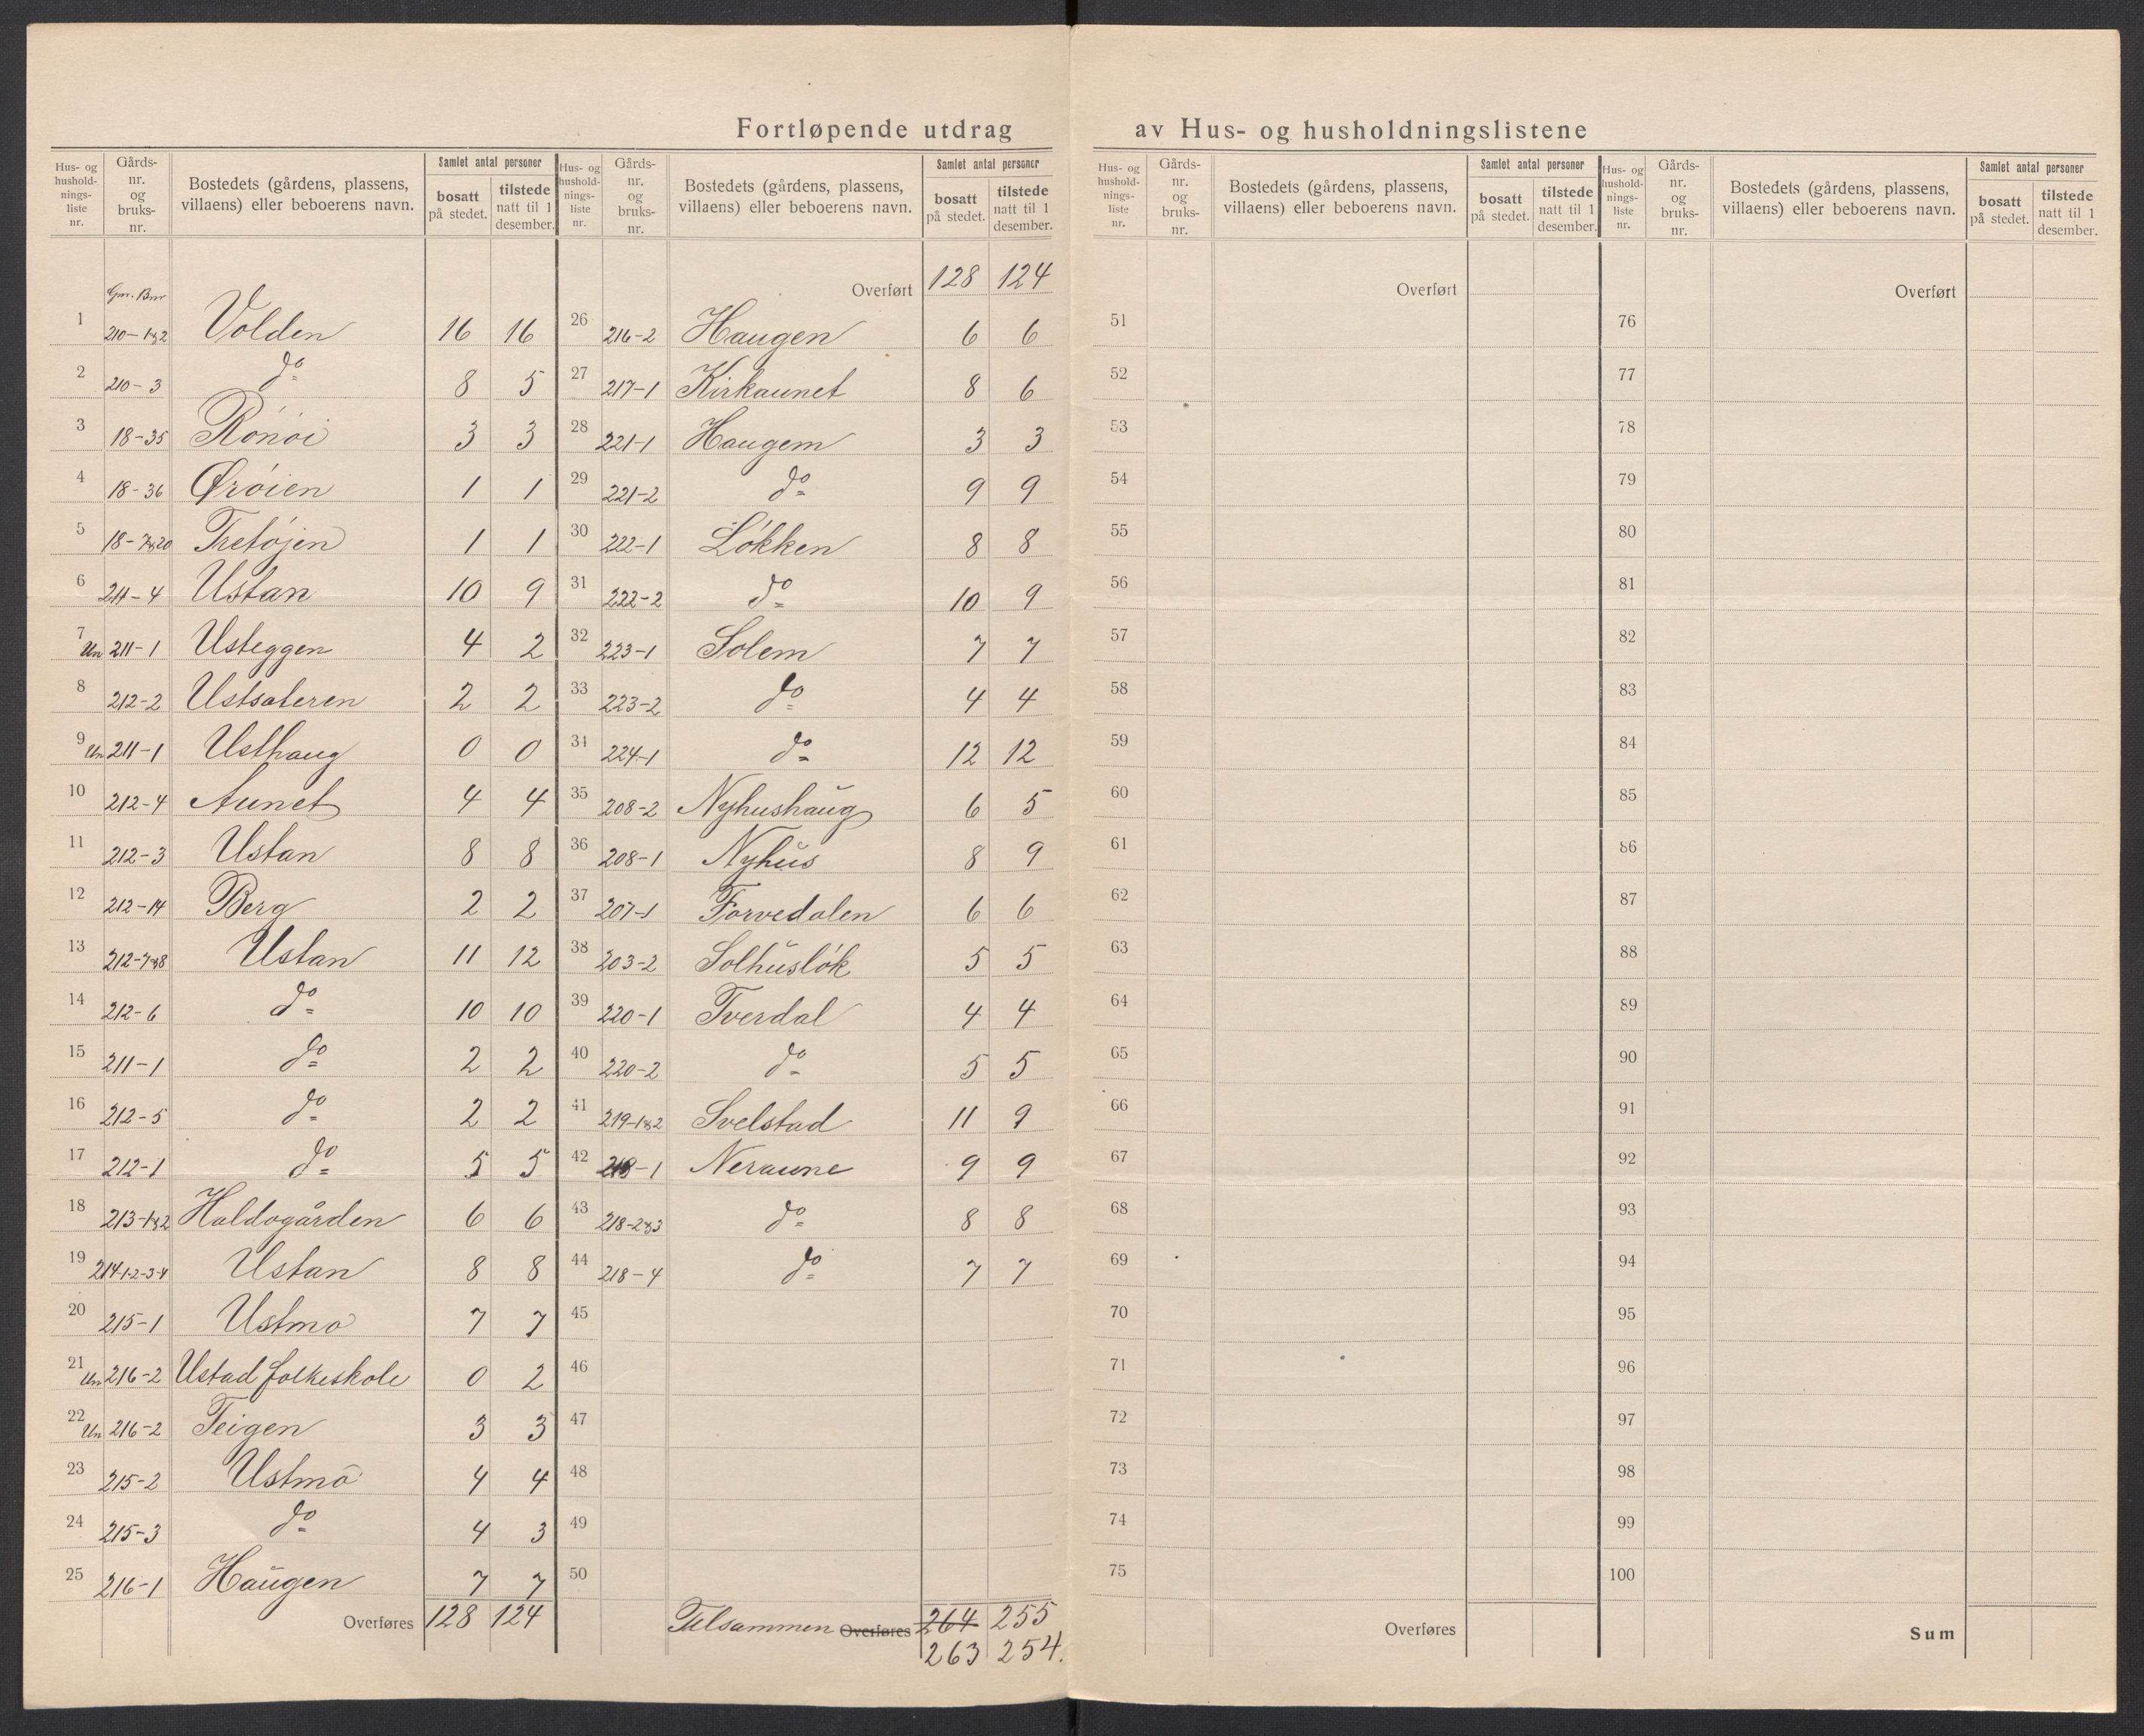 Fortløpende utdrag av Hus- og husholdningslistene
Hus- og husholdnings- liste nr. | Gårds- nr. og bruks- nr. | Bostedets (gårdens, plassens, villaens) eller beboerens navn. | Samlet antal personer | bosatt på stedet. | tilstede natt til 1 desember.
Gnr. Bnr
1 210-1&2 Volden 16 16
2 210-3 do 8 5
3 18-35 Rönöi 3 3
4 18-36 Öröien 1 1
5 18-7&20 Tretöjen 1 1
6 211-4 Ustan 10 9
7 Un 211-1 Usteggen 4 2
8 212-2 Ustsateren 2 2
9 Un 211-1 Usthaug 0 0
10 212-4 Aunet 4 4
11 212-3 Ustan 8 8
12 212-14 Berg 2 2
13 212-7&8 Ustan 11 12
14 212-6 do 10 10
15 211-1 do 2 2
16 212-5 do 2 2
17 212-1 do 5 5
18 213-1&2 Haldogården 6 6
19 214-1-2-3-4 Ustan 8 8
20 215-1 Ustmo 7 7
21 Un 216-2 Ustad folkeskole 0 2
22 Un 216-2 Teigen 3 3
23 215-2 Ustmo 4 4
24 215-3 do 4 3
25 216-1 Haugen 7 7
Overføres 128 124
Hus- og husholdnings- liste nr. | Gårds- nr. og bruks- nr. | Bostedets (gårdens, plassens, villaens) eller beboerens navn. | Samlet antal personer | bosatt på stedet. | tilstede natt til 1 desember.
Overført 128 124
26 216-2 Haugen 6 6
27 217-1 Kirkaunet 8 6
28 221-1 Haugem 3 3
29 221-2 do 9 9
30 222-1 Lökken 8 8
31 222-2 do 10 9
32 223-1 Solem 7 7
33 223-2 do 4 4
34 224-1 do 12 12
35 208-2 Nyhushaug 6 5
36 208-1 Nyhus 8 9
37 207-1 Forvedalen 6 6
38 203-2 Solhuslök 5 5
39 220-1 Tverdal 4 4
40 220-2 do 5 5
41 219-1&2 Svelstad 11 9
42 218-1 Neraune 9 9
43 218-2&3 do 8 8
44 218-4 do 7 7
45
46
47
48
49
50
Tilsammen Overføres 264 255
263 254.
Hus- og hushold- nings- liste nr. | Gårds- nr. og bruks- nr. | Bostedets (gårdens, plassens, villaens) eller beboerens navn. | Samlet antal personer | bosatt på stedet. | tilstede natt til 1 desember.
Overført
51
52
53
54
55
56
57
58
59
60
61
62
63
64
65
66
67
68
69
70
71
72
73
74
75
Overføres
Hus- og hushold- nings- liste nr. | Gårds- nr. og bruks- nr. | Bostedets (gårdens, plassens, villaens) eller beboerens navn. | Samlet antal personer | bosatt på stedet. | tilstede natt til 1 desember.
Overført
76
77
78
79
80
81
82
83
84
85
86
87
88
89
90
91
92
93
94
95
96
97
98
99
100
Sum